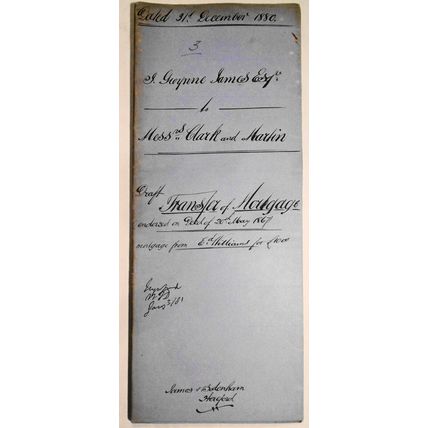 Dated 31st December 1880.
3
J. Gwynne James Esqre
to
Messrs Clark and Martin
Draft
Transfer of Mortgage
endorsed on Deed of 20th May 1867
mortgage from Ed Williams for £1000
Jany 3/81
James & Bodenham
Hereford